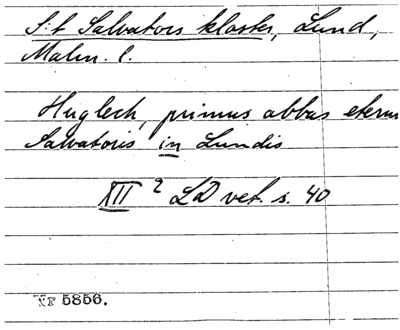 S:t Salvators kloster, Lund,
Malm. l.
Huglech, primus abbas eterni
Salvatoris in Lundis
XII 2 LD vet. s. 40
Nr 5856.